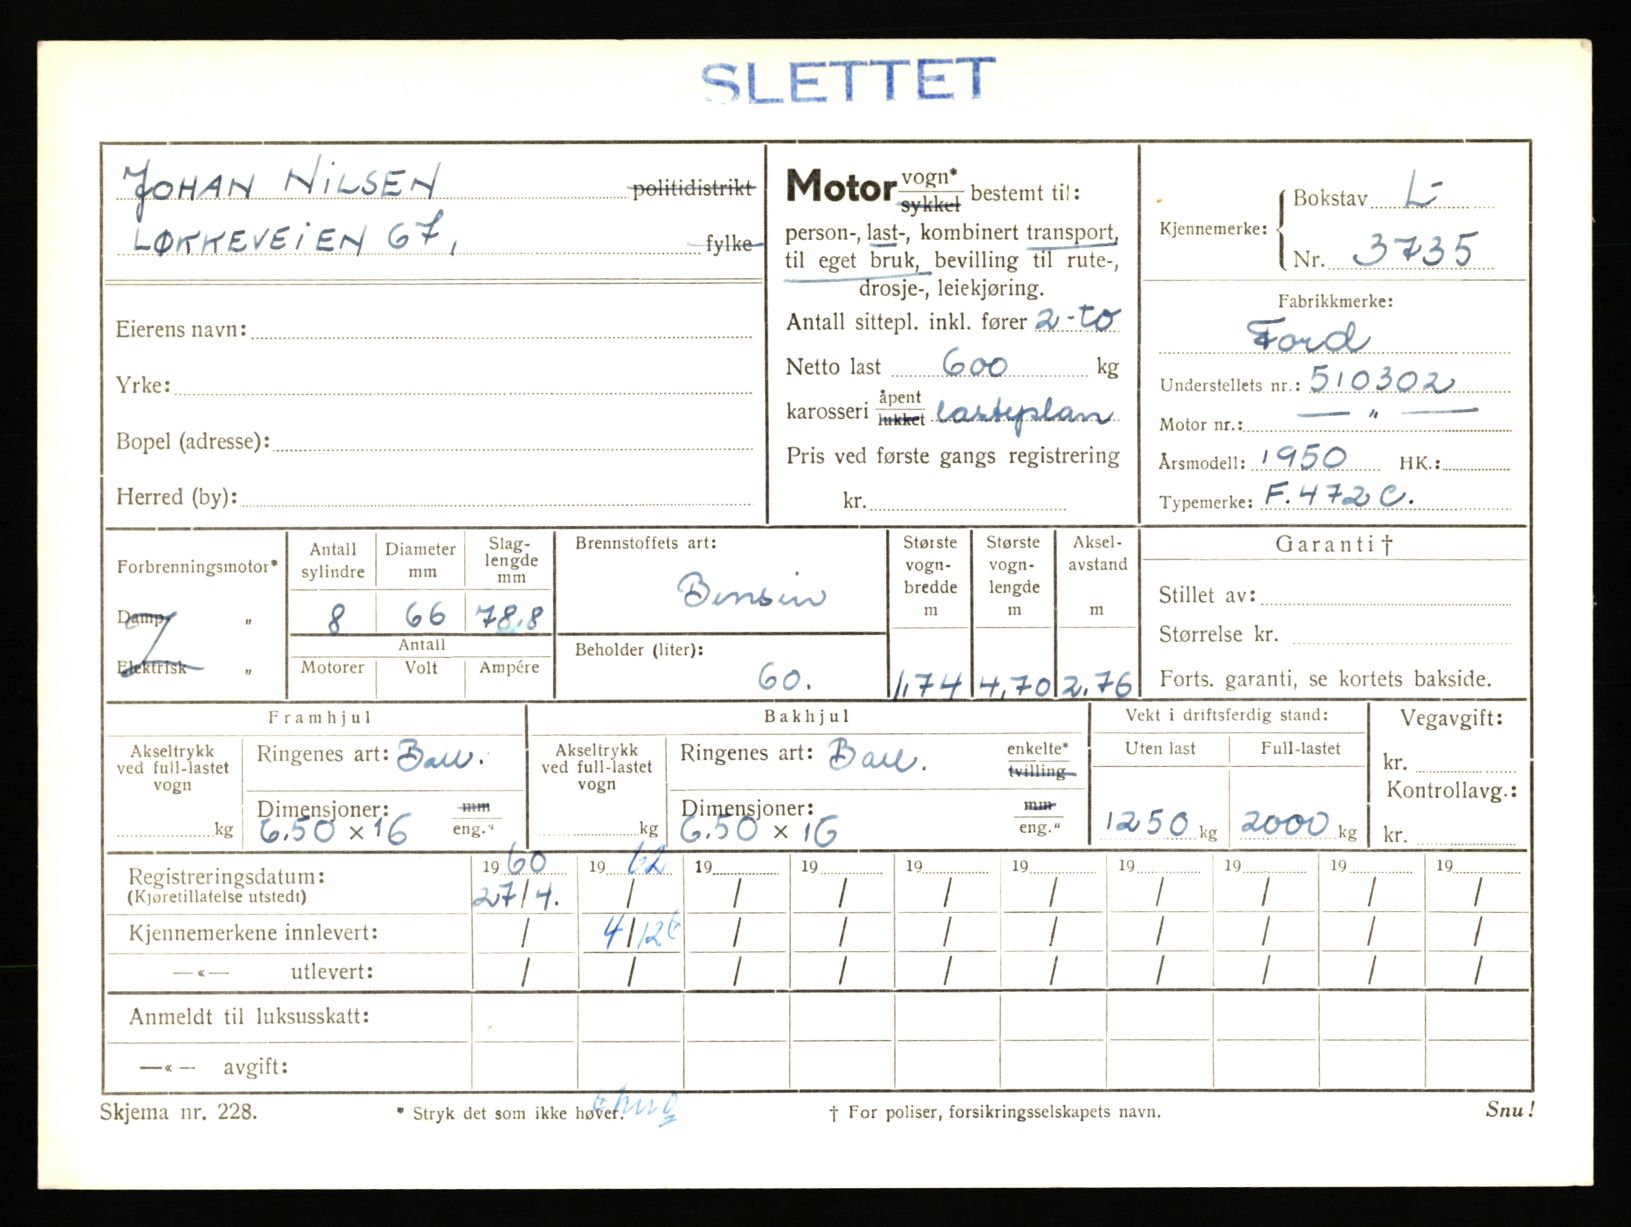 SLETTET
JOHAN NILSEN politidistrikt
LØKKEVEIEN 67, fylke
Eierens navn:
Yrke:
Bopel (adresse):
Herred (by):
Motor vogn* sykkel bestemt til:
person-, last-, kombinert transport,
til eget bruk, bevilling til rute-,
drosje-, leiekjøring.
Antall sittepl. inkl. fører 2-to
Netto last 600 kg
karosseri åpent lukket lasteplan
Pris ved første gangs registrering
kr.
Kjennemerke: Bokstav L-
Nr. 3735
Fabrikkmerke:
Ford
Understellets nr.: 510302
Motor nr.: — " —
Årsmodell: 1950 HK.:
Typemerke: F.472C.
Forbrenningsmotor*
Damp "
Elektrisk "
Antall sylindre
Diameter mm
Slag-lengde mm
8 66 78,8
Antall
Motorer Volt Ampére
Brennstoffets art:
Bensin
Beholder (liter):
60.
Største vogn-bredde m
1,74
Største vogn-lengde m
4,70
Aksel-avstand m
2,76
Garanti †
Stillet av:
Størrelse kr.
Forts. garanti, se kortets bakside.
Framhjul
Akseltrykk ved full-lastet vogn
kg
Ringenes art: Ball.
Dimensjoner: mm
6.50 × 16 eng."
Bakhjul
Akseltrykk ved full-lastet vogn
kg
Ringenes art: Ball. enkelte* tvilling
Dimensjoner: mm
6.50 × 16 eng."
Vekt i driftsferdig stand:
Uten last Full-lastet
1250 kg 2000 kg
Vegavgift:
kr.
Kontrollavg.:
kr.
1960 1962 19 19 19 19 19 19 19 19
Registreringsdatum:
(Kjøretillatelse utstedt) 27/4. / / / / / / / / /
Kjennemerkene innlevert: / 4/12 / / / / / / / /
—«— utlevert: / / / / / / / / / /
Anmeldt til luksusskatt:
—«— avgift:
Skjema nr. 228. * Stryk det som ikke høver. † For poliser, forsikringsselskapets navn. Snu!